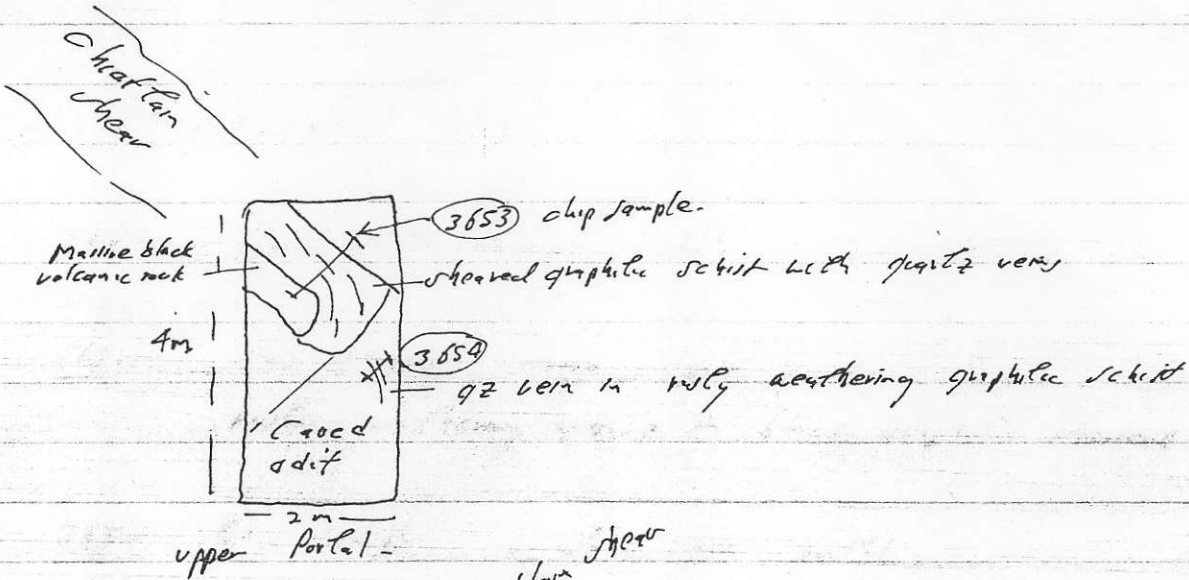 Chieftain
shear
3653 chip sample.
Massive black
volcanic rock
sheared graphitic schist with quartz veins
4m
3654
qz vein in rusty weathering graphitic schist
Caved
adit
2m
upper Portal-
shear